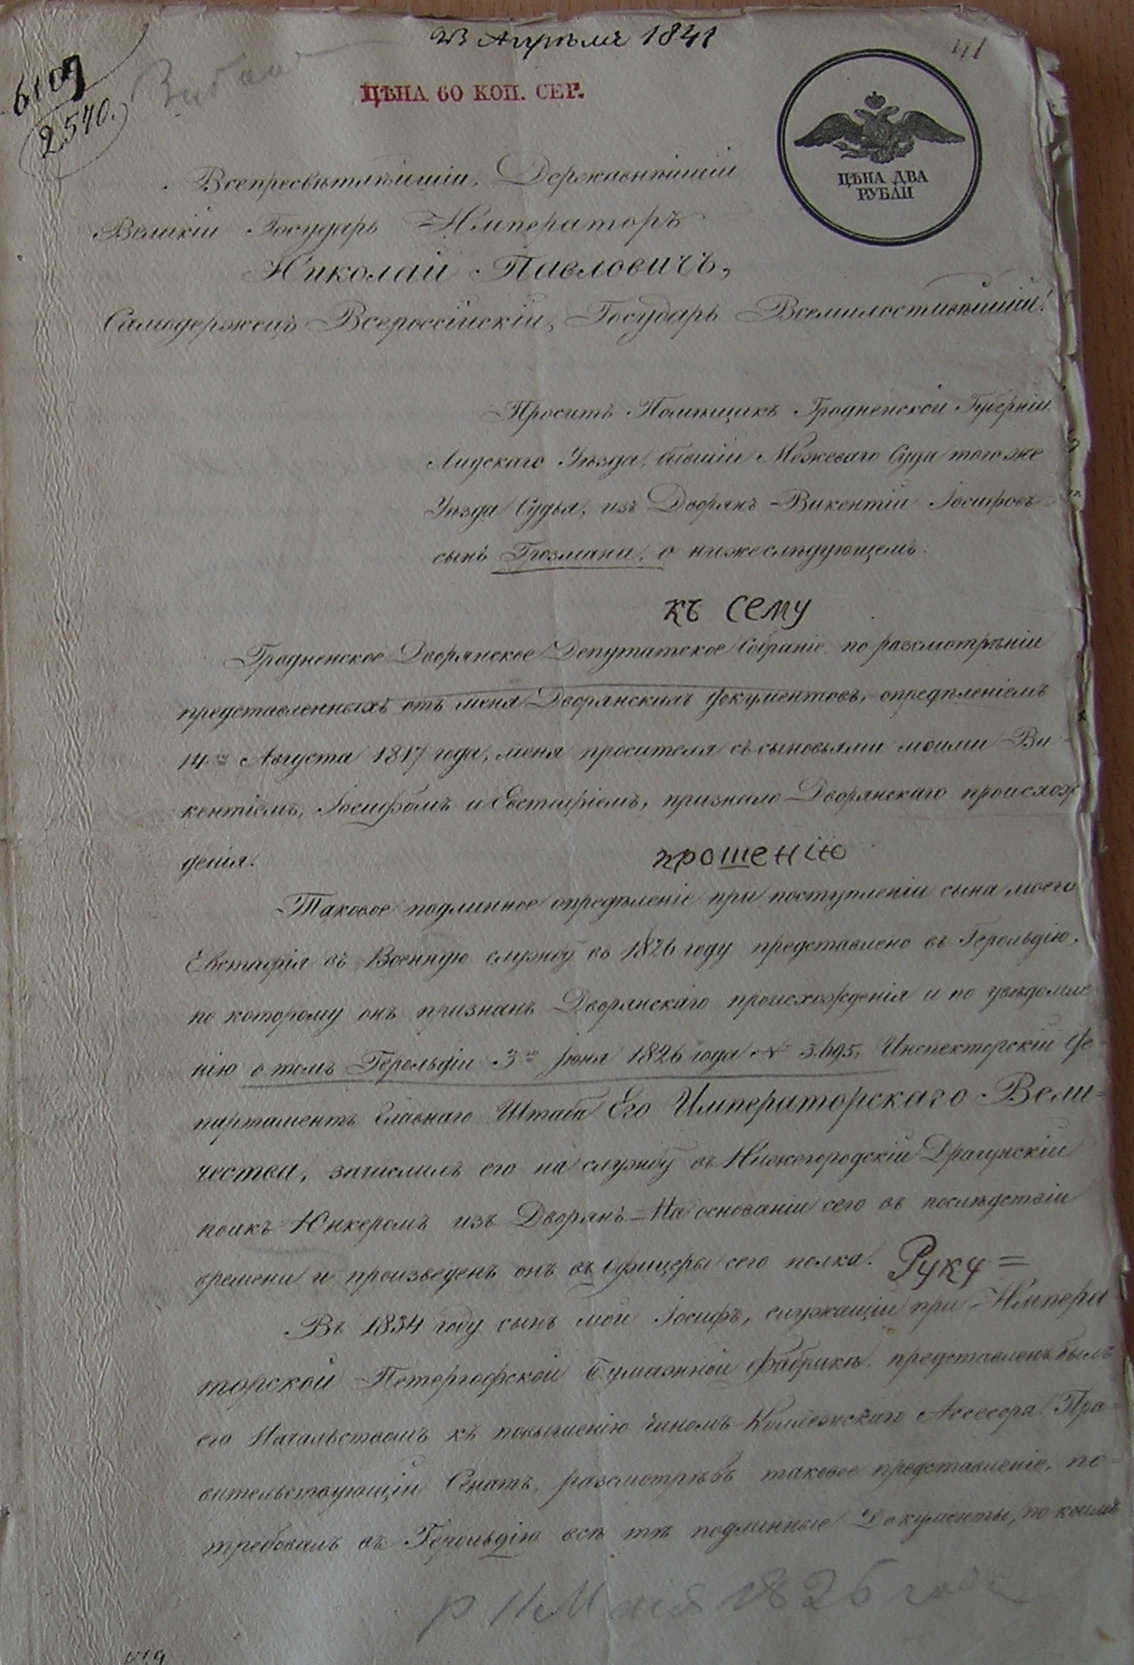 23 Апрѣля 1841
41
6109
2540.
ЦѢНА 60 КОП. СЕР.
ЦѢНА ДВА
РУБЛИ
Всепресвѣтлѣйшій, Державнѣйшій
Великій Государь Императоръ
Николай Павловичъ,
Самодержецъ Всероссійскій, Государь Всемилостивѣйшій!
Проситъ Помѣщикъ Гродненской Губерніи
Лидскаго Уѣзда, бывшій Межеваго Суда того же
Уѣзда Судья, изъ Дворянъ Викентій Іосифовъ
сынъ Грозмани, о нижеслѣдующемъ.
къ сему
Гродненское Дворянское Депутатское Собраніе по разсмотрѣніи
представленныхъ отъ меня Дворянскихъ Документовъ, опредѣленіемъ
14го Августа 1817 года, меня просителя съ сыновьями моими Ви-
кентіемъ, Іосифомъ и Евстафіемъ, признало Дворянскаго происхож-
денія.
прошенію
Таковое подлинное опредѣленіе при поступленіи сына моего
Евстафія въ Военную службу въ 1826 году представлено въ Герольдію,
по которому онъ признанъ Дворянскаго происхожденія и по увѣдомле-
нію о томъ Герольдіи 3го Іюня 1826 года № 3695, Инспекторскій Де-
партаментъ Главнаго Штаба Его Императорскаго Вели-
чества, зачислилъ его на службу въ Нижегородскій Драгунскій
полкъ Юнкеромъ изъ Дворянъ. На основаніи сего въ послѣдствіи
времени и произведенъ онъ въ Офицеры сего полка. Руку=
Въ 1834 году сынъ мой Іосифъ, служащій при Импера
торской Петергофской Бумажной Фабрикѣ, представленъ былъ
его Начальствомъ къ повышенію чиномъ Коллежскаго Ассесора. Пра-
вительствующій Сенатъ, разсмотрѣвъ таковое представленіе, по-
требовалъ въ Герольдію всѣ тѣ подлинные Документы, по коимъ
11 Мая 1826 года